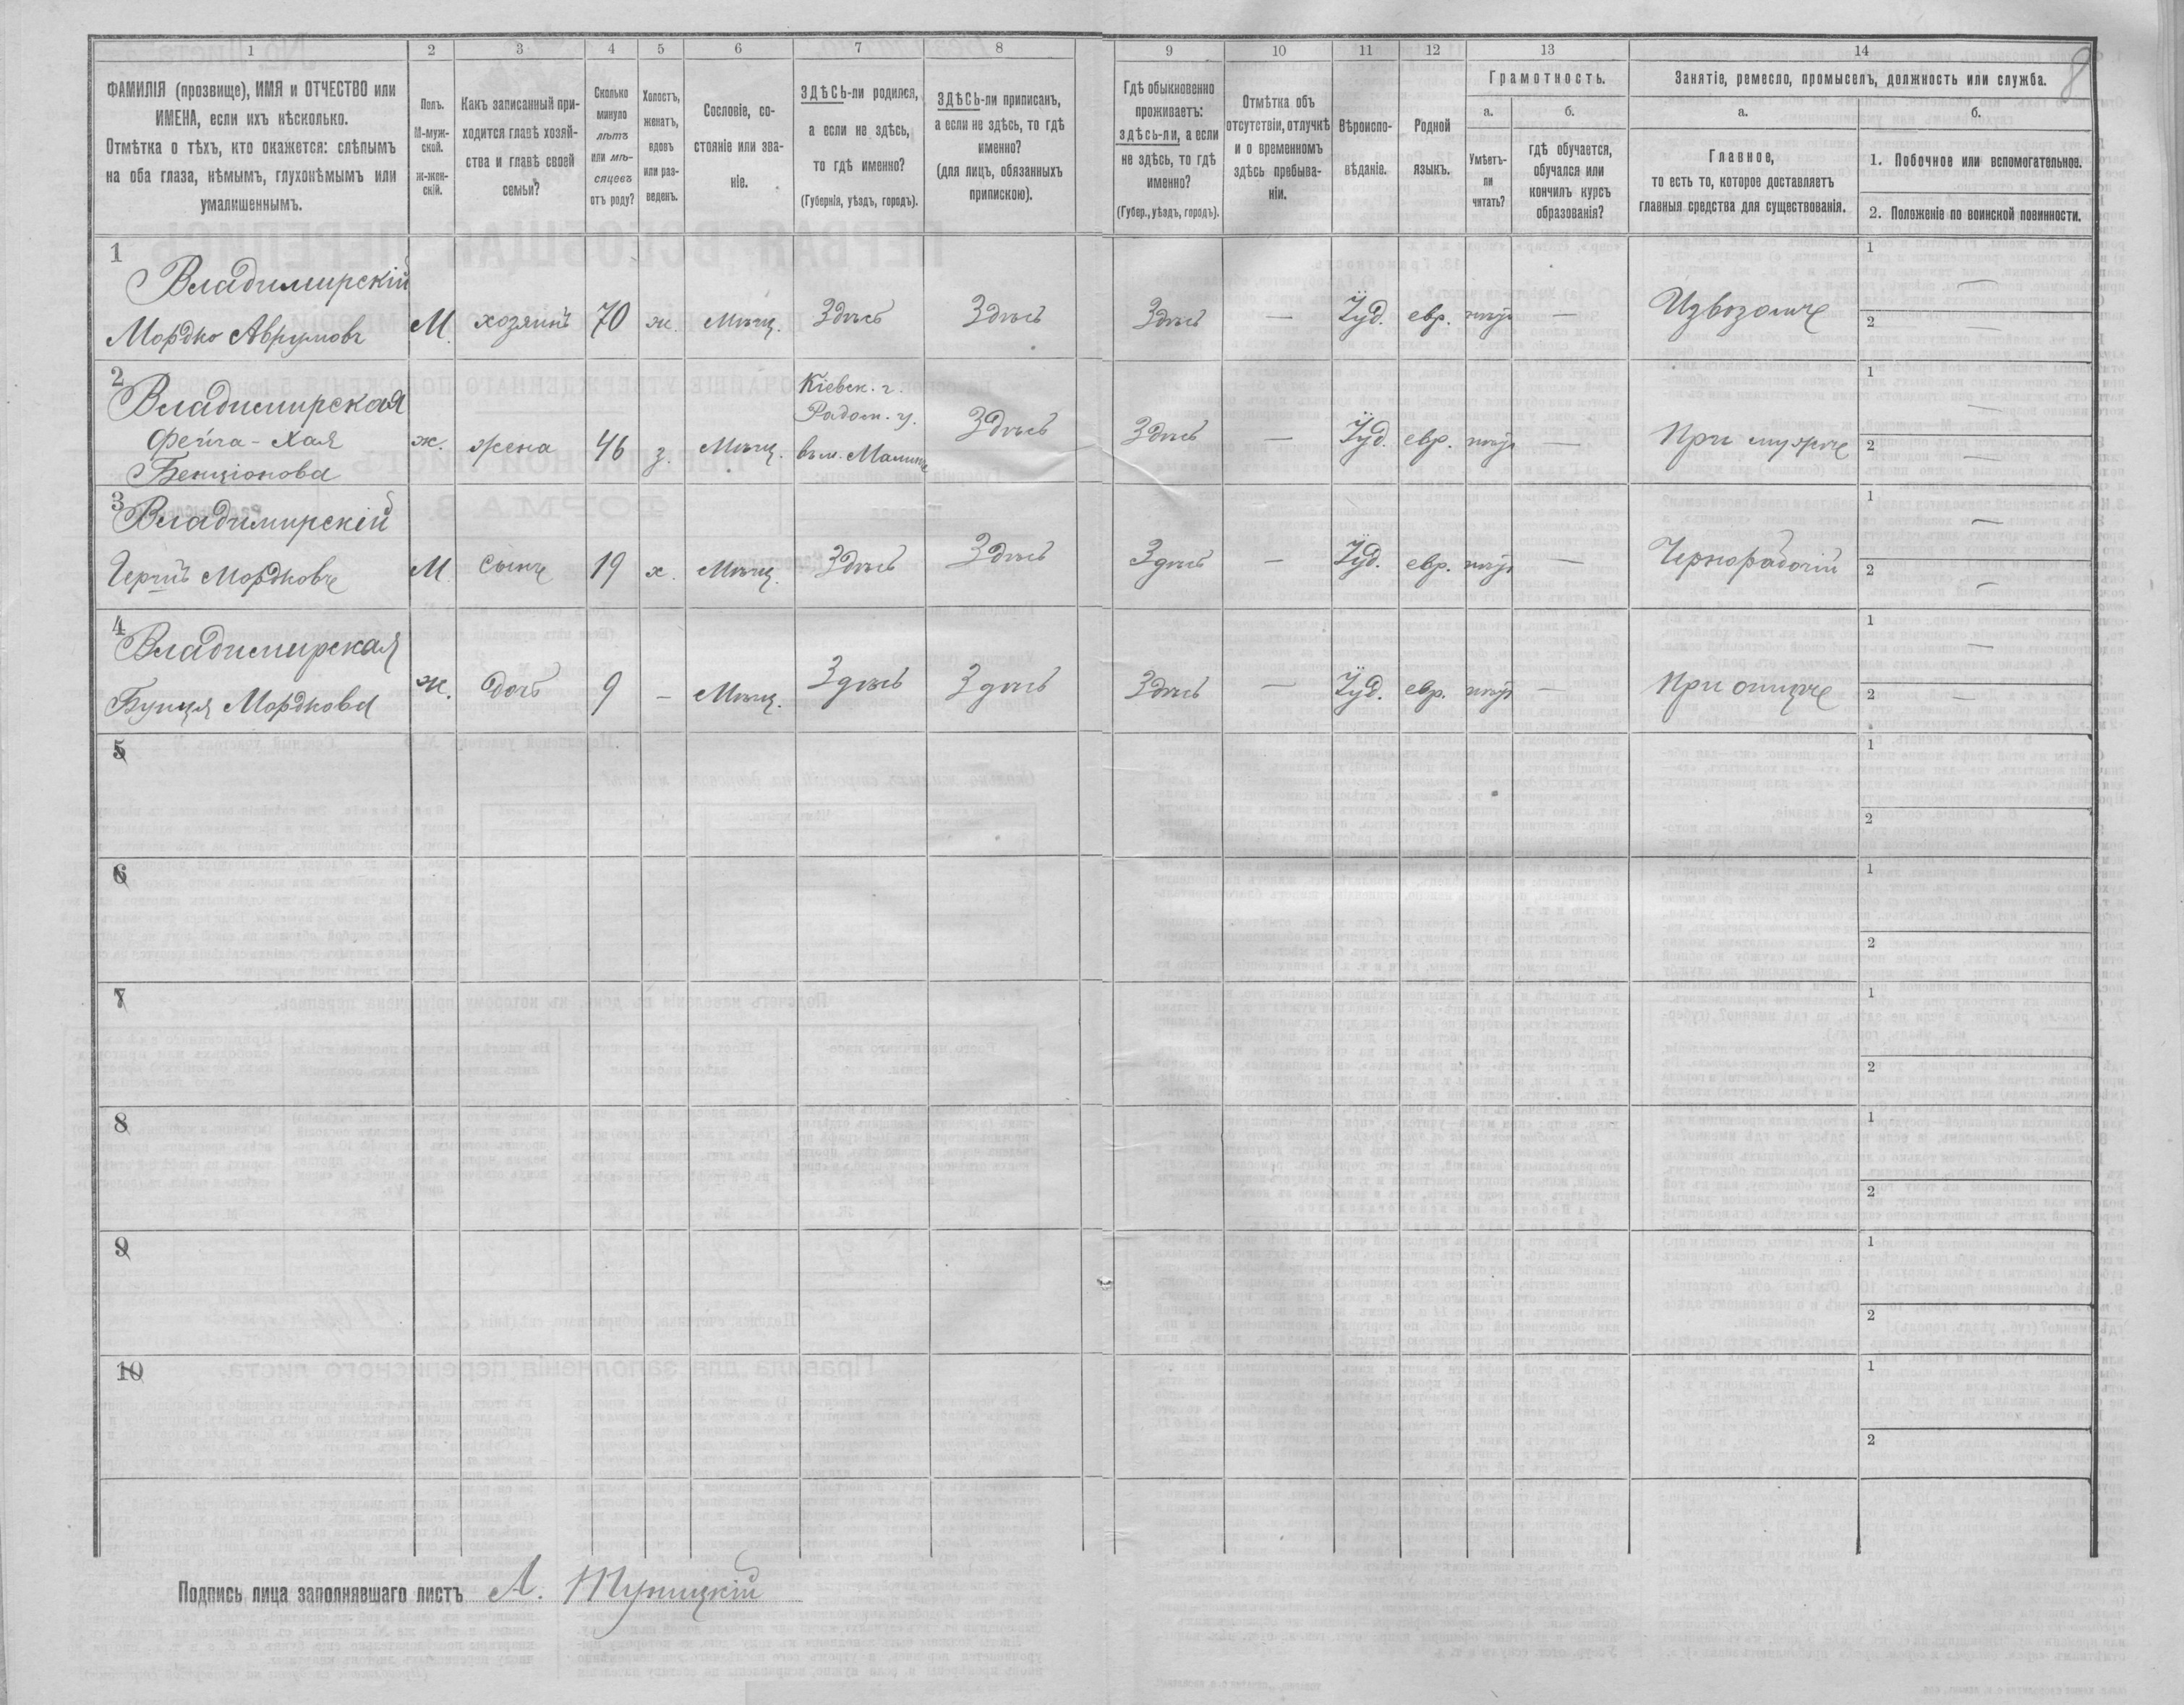 1 2 3 4 5 6 7 8 9 10 11 12 13 14
8
ФАМИЛІЯ (прозвище), ИМЯ и ОТЧЕСТВО или
ИМЕНА, если ихъ нѣсколько.
Отмѣтка о тѣхъ, кто окажется: слѣпымъ
на оба глаза, нѣмымъ, глухонѣмымъ или
умалишеннымъ.
Полъ.
М-муж-
ской.
ж-жен-
скій.
Какъ записанный при-
ходится главѣ хозяй-
ства и главѣ своей
семьи?
Сколько
минуло
лѣтъ
или мѣ-
сяцевъ
отъ роду?
Холостъ,
женатъ,
вдовъ
или раз-
веденъ.
Сословіе, со-
стояніе или зва-
ніе.
ЗДѢСЬ-ли родился,
а если не здѣсь,
то гдѣ именно?
(Губернія, уѣздъ, городъ).
ЗДѢСЬ-ли приписанъ,
а если не здѣсь, то гдѣ
именно?
(для лицъ, обязанныхъ
припискою).
Гдѣ обыкновенно
проживаетъ:
здѣсь-ли, а если
не здѣсь, то гдѣ
именно?
(Губер., уѣздъ, городъ).
Отмѣтка объ
отсутствіи, отлучкѣ
и о временномъ
здѣсь пребыва-
ніи.
Вѣроиспо-
вѣданіе.
Родной
языкъ.
Грамотность.
а.
Умѣетъ-
ли
читать?
б.
гдѣ обучается,
обучался или
кончилъ курсъ
образованія?
Занятіе, ремесло, промыселъ, должность или служба.
а.
Главное,
то есть то, которое доставляетъ
главныя средства для существованія.
б.
1. Побочное или вспомогательное.
2. Положеніе по воинской повинности.
1
Владимирскій
Мордко Аврумовъ М. хозяинъ 70 ж. Мѣщ. Здѣсь Здѣсь Здѣсь — Іуд. евр. — Извозомъ
1 —
2 —
2
Владимирская
Фейга-Хая
Бенціонова ж. жена 46 з. Мѣщ.
Кіевск. г.
Радом. у.
въ м. Малинѣ
Здѣсь Здѣсь — Іуд. евр. — При мужѣ
1 —
2 —
3
Владимирскій
Мордковъ М. сынъ 19 х. Мѣщ. Здѣсь Здѣсь Здѣсь — Іуд. евр. — Чернорабочій
1 —
2 —
4
Владимирская
Бунця Мордкова ж. дочь 9 — Мѣщ. Здѣсь Здѣсь Здѣсь — Іуд. евр. — При отцѣ
1 —
2 —
5
1
2
6
1
2
7
1
2
8
1
2
9
1
2
10
1
2
Подпись лица заполнявшаго листъ А.